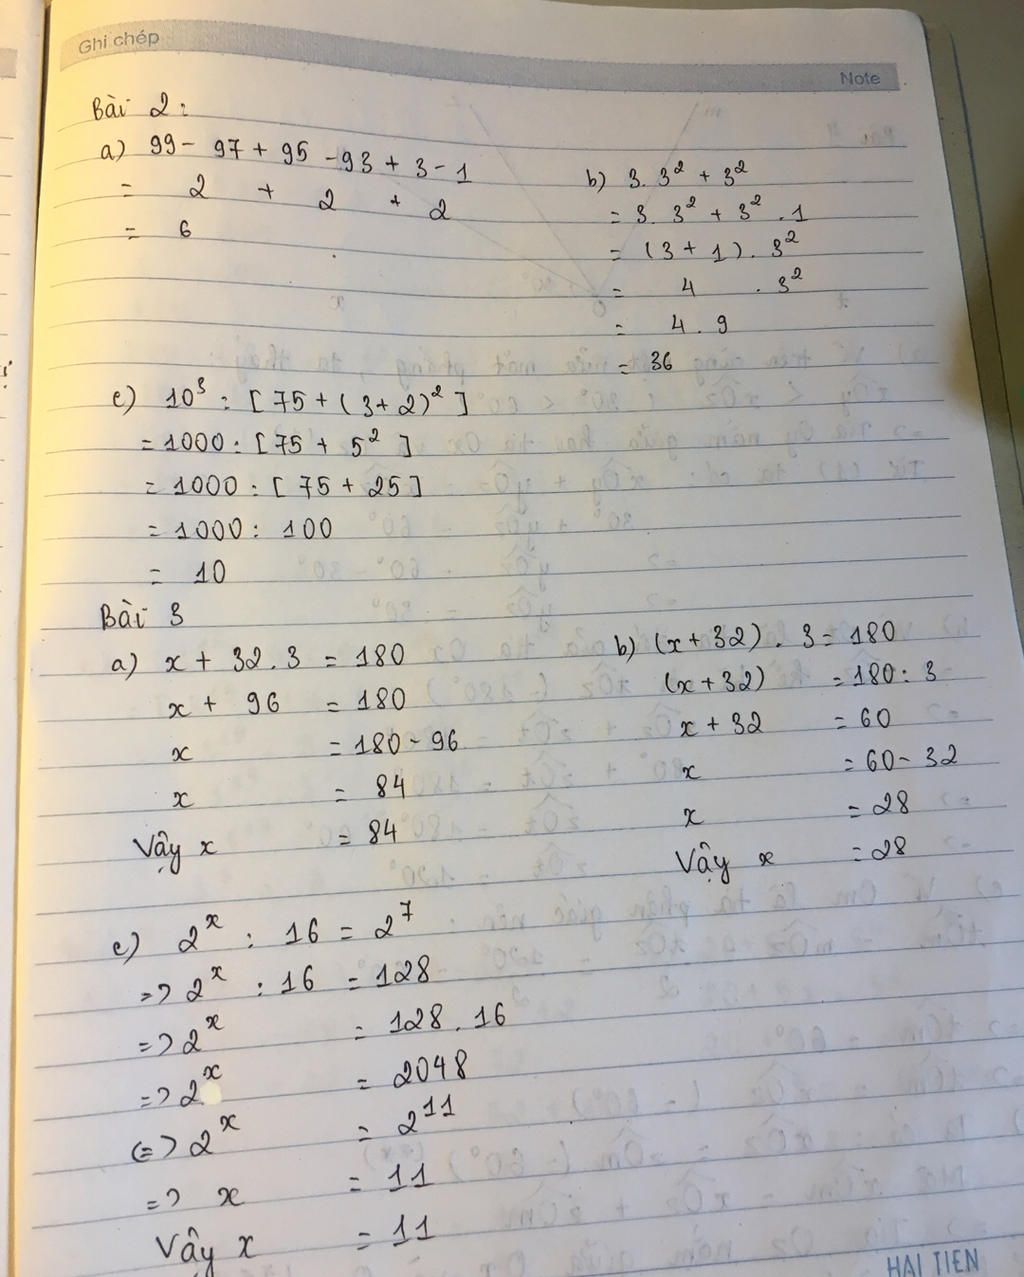 Ghi chép
Note
Bài 2:
a) 99 - 97 + 95 - 93 + 3 - 1
= 2 + 2 + 2
= 6
b) 3. 3² + 3²
= 3. 3² + 3² . 1
= (3 + 1). 3²
= 4 . 3²
= 4 . 9
= 36
c) 10³ : [75 + (3 + 2)²]
= 1000 : [75 + 5²]
= 1000 : [75 + 25]
= 1000 : 100
= 10
Bài 3
a) x + 32.3 = 180
x + 96 = 180
x = 180 - 96
x = 84
Vậy x = 84
b) (x + 32). 3 = 180
(x + 32) = 180 : 3
x + 32 = 60
x = 60 - 32
x = 28
Vậy x = 28
c) 2ˣ : 16 = 2⁷
=> 2ˣ : 16 = 128
=> 2ˣ = 128 . 16
=> 2ˣ = 2048
(=> 2ˣ = 2¹¹
=> x = 11
Vậy x = 11
HẢI TIẾN